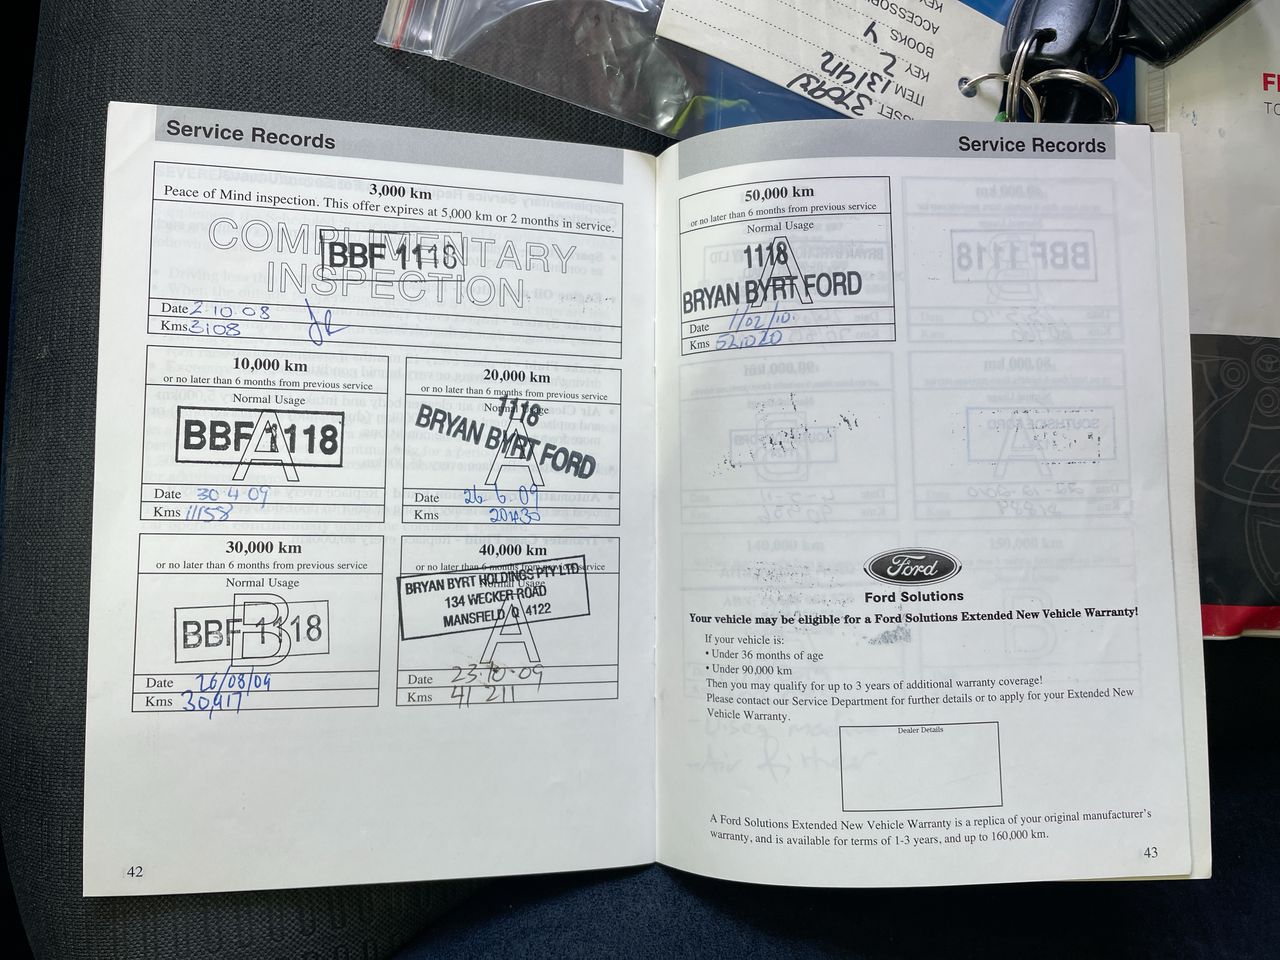 ACCESSOR
BOOKS 4
KEY 2
ITEM 131412
Service Records
3,000 km
Peace of Mind inspection. This offer expires at 5,000 km or 2 months in service.
COMPLIMENTARY
INSPECTION.
BBF 1118
Date 2.10.08
Kms 3108
10,000 km
or no later than 6 months from previous service
Normal Usage
A
BBF 1118
Date 30.4.09
Kms 11158
20,000 km
or no later than 6 months from previous service
Normal Usage
A
1118
BRYAN BYRT FORD
Date 26.6.09
Kms 20430
30,000 km
or no later than 6 months from previous service
Normal Usage
B
BBF 1118
Date 26/08/09
Kms 30,917
40,000 km
or no later than 6 months from previous service
Normal Usage
A
BRYAN BYRT HOLDINGS PTY LTD
134 WECKER ROAD
MANSFIELD Q 4122
Date 23.10.09
Kms 41 211
42
Service Records
50,000 km
or no later than 6 months from previous service
Normal Usage
A
1118
BRYAN BYRT FORD
Date 1/02/10.
Kms
Ford
Ford Solutions
Your vehicle may be eligible for a Ford Solutions Extended New Vehicle Warranty!
If your vehicle is:
• Under 36 months of age
• Under 90,000 km
Then you may qualify for up to 3 years of additional warranty coverage!
Please contact our Service Department for further details or to apply for your Extended New
Vehicle Warranty.
Dealer Details
A Ford Solutions Extended New Vehicle Warranty is a replica of your original manufacturer's
warranty, and is available for terms of 1-3 years, and up to 160,000 km.
43